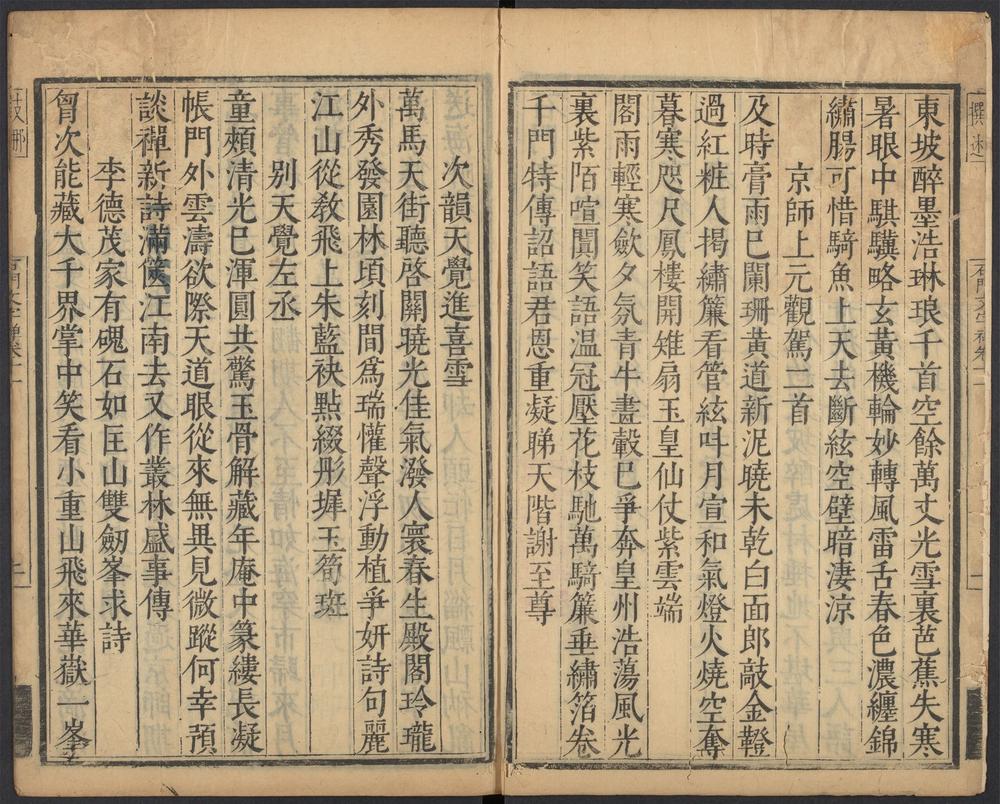 東坡醉墨浩琳琅千首空餘萬丈光雪裏芭蕉失寒
暑眼中騏驥略玄黃機輪妙轉風雷舌春色濃纏錦
繡腸可惜騎魚上天去斷絃空壁暗淒涼
京師上元觀駕二首
及時膏雨巳闌珊黃道新泥曉未乾白面郎敲金鐙
過紅粧人揭繡簾看管絃呌月宣和氣燈火燒空奪
暮寒咫尺鳳樓開雉扇玉皇仙仗紫雲端
閣雨輕寒斂夕氛青牛畫轂巳爭奔皇州浩蕩風光
裏紫陌喧闐笑語温冠壓花枝馳萬騎簾垂繡箔卷
千門特傳詔語君恩重凝睇天階謝至尊
次韻天覺進喜雪
萬馬天街聽啓關曉光佳氣潑人寰春生殿閣玲瓏
外秀發園林頃刻間爲瑞懽聲浮動植爭妍詩句麗
江山從教飛上朱藍袂㸃綴彤墀玉筍班
别天覺左丞
童頰清光巳渾圓共驚玉骨解藏年庵中篆縷長凝
帳門外雲濤欲際天道眼從來無異見微蹤何幸預
談禪新詩滿篋江南去又作叢林盛事傳
李德茂家有磈石如匡山雙劒峯求詩
胷次能藏大千界掌中笑看小重山飛來華嶽一峯